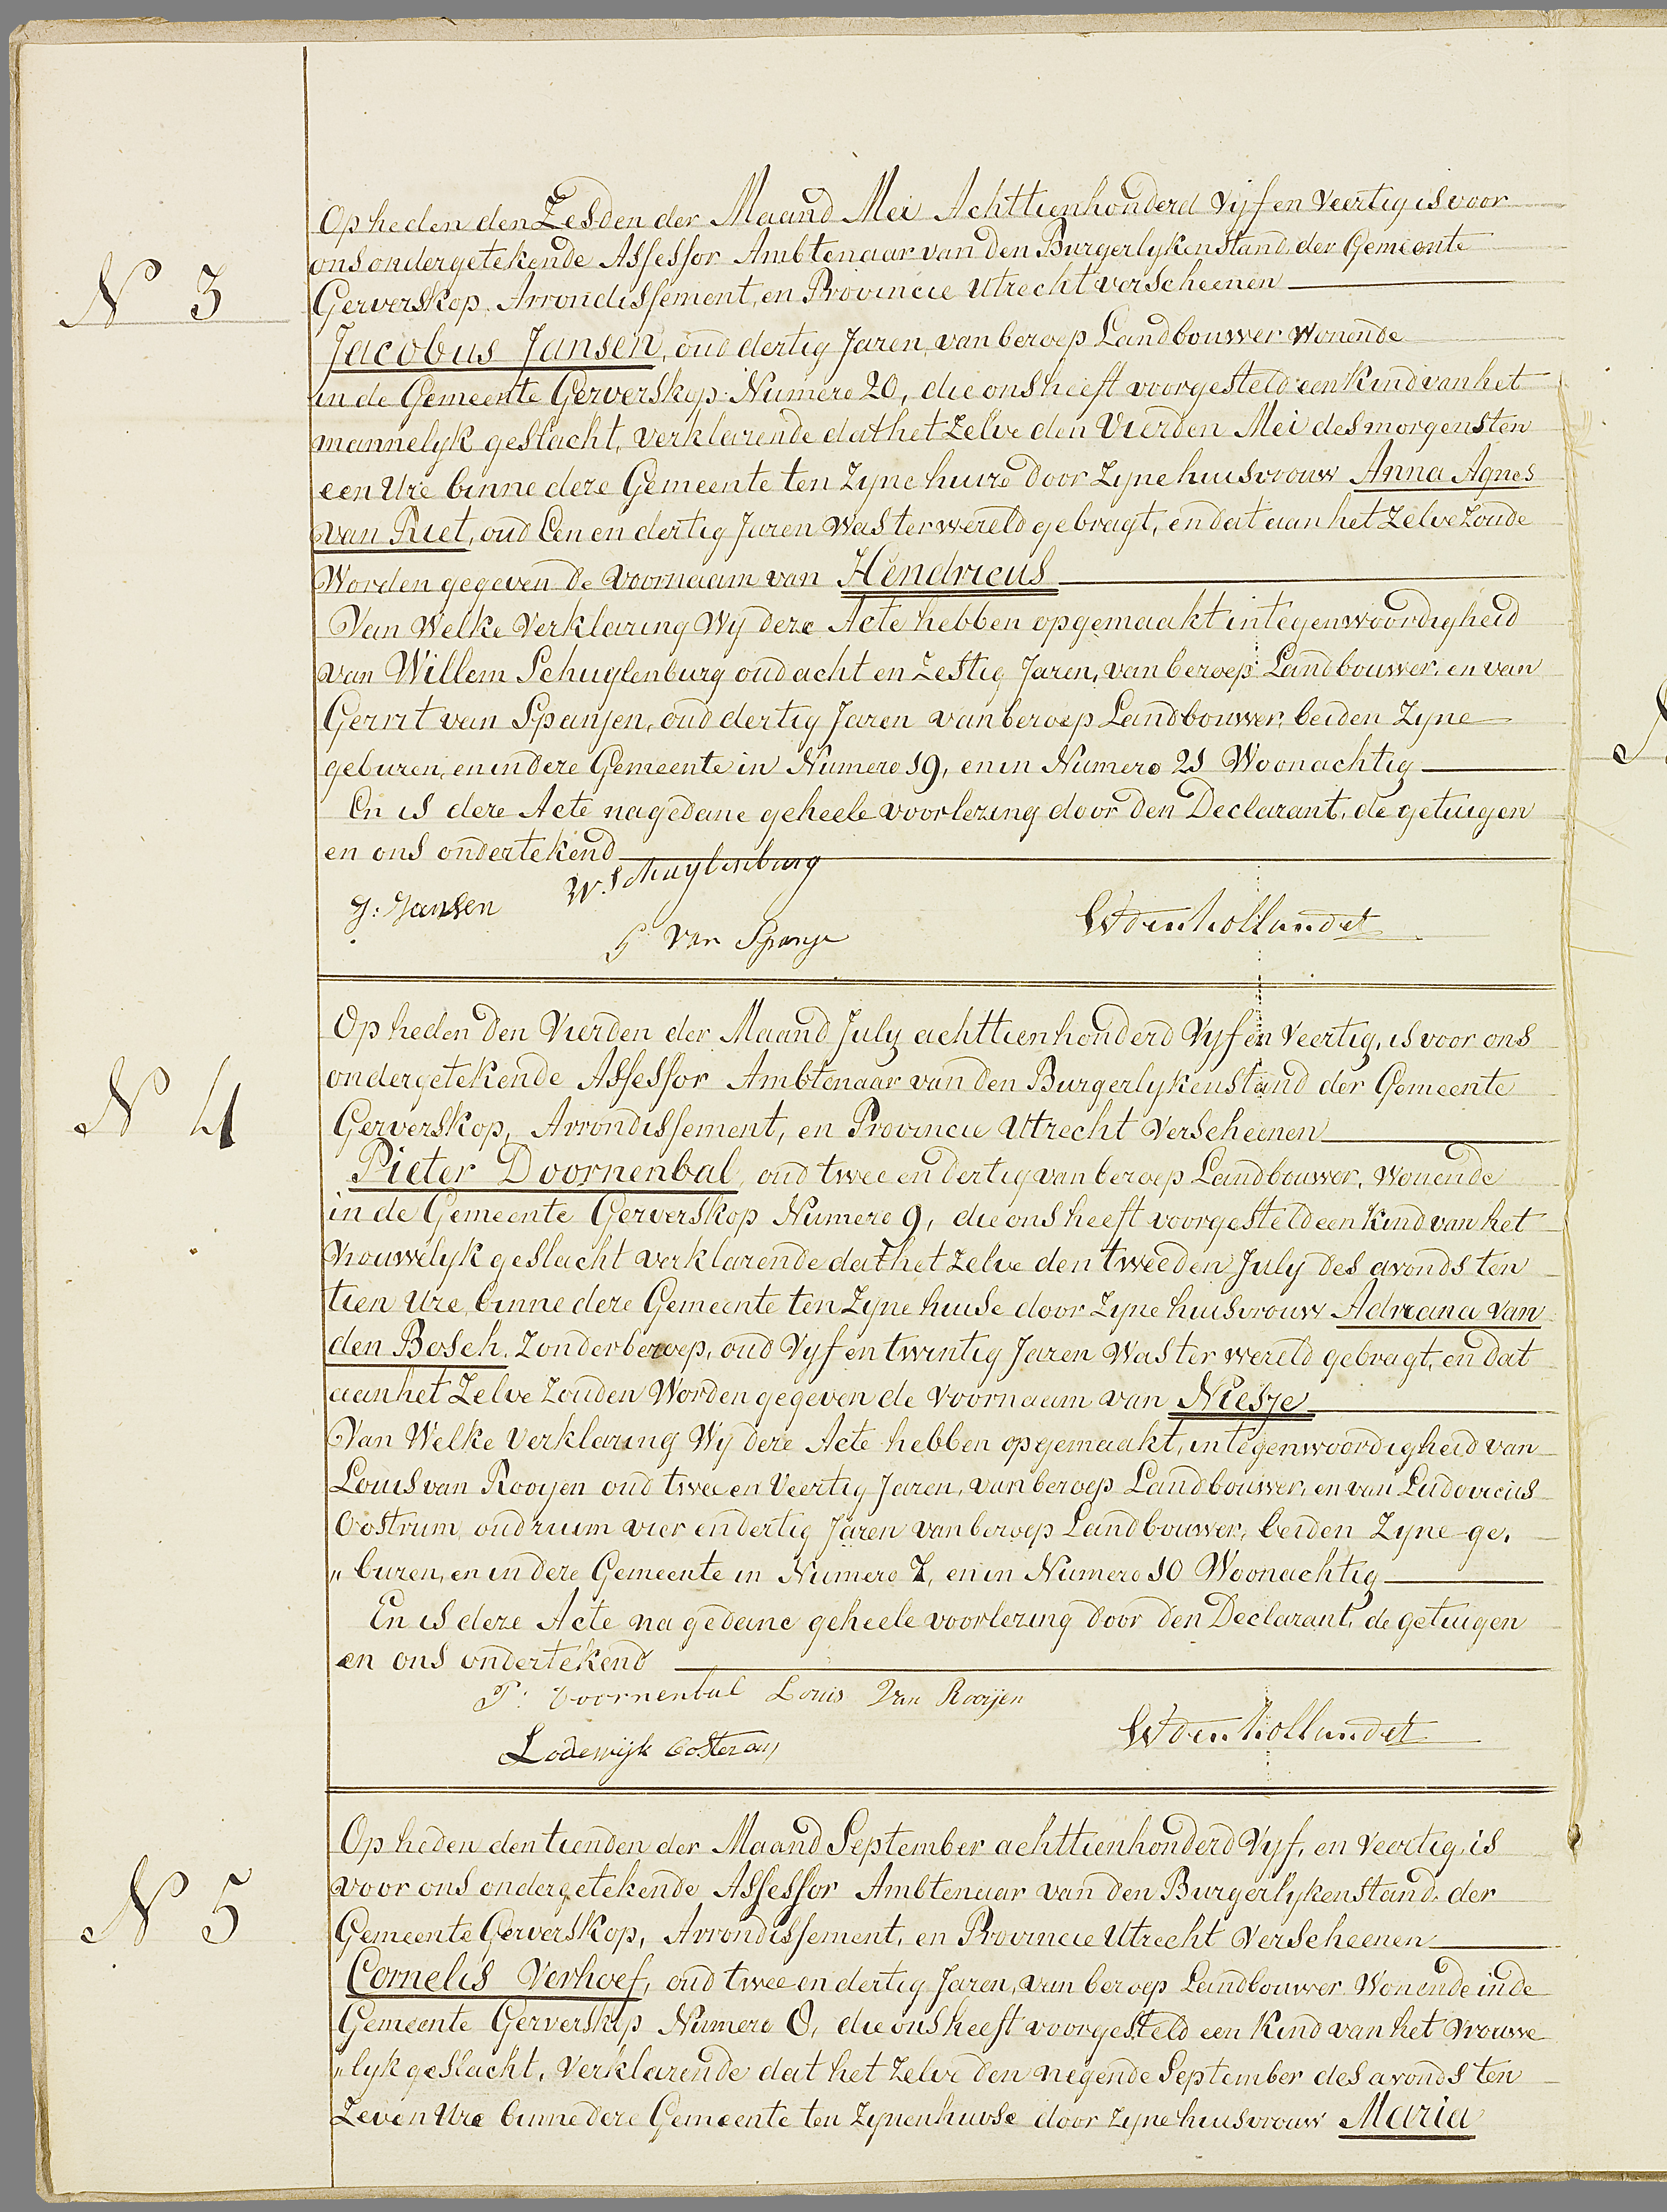 Op heden den Zesden der Maand Mei Achttienhonderd Vijf en Veertig is voor
ons ondergetekende Assessor Ambtenaar van den Burgerlyken Stand, der Gemeente
N 3
Gerverskop, Arrondissement, en Provincie Utrecht verscheenen
Jacobus Jansen, oud dertig Jaren, van beroep Landbouwer Wonende
in de Gemeente Gerverskop Numero 20, die ons heeft voorgesteld een Kind van het
mannelyk geslacht, verklarende dat het Zelve den Vierden Mei des morgens ten
een Ure binne deze Gemeente ten Zyne huize door Zyne huisvrouw Anna Agnes
van Riet, oud Een en dertig Jaren was ter wereld gebragt, en dat aan het Zelve Zoude
Worden gegeven de Voornaam van Hendricus
Van Welke Verklaring Wy deze Acte hebben opgemaakt in tegenwoordigheid
van Willem Schuylenburg oud acht en Zestig Jaren, van beroep Landbouwer, en van
Gerrit van Spanjen, oud dertig Jaren van beroep Landbouwer, beiden Zyne
geburen, en in deze Gemeente in Numero 19, en in Numero 21 Woonachtig
En is deze Acte na gedane geheele voorlezing door den Declarant, de getuigen
en ons ondertekend
J: Jansen W. Schuylenburg
G van Spanje W den hollander
Op heden den Vierden der Maand July achttienhonderd Vyf en Veertig, is voor ons
ondergetekende Assessor Ambtenaar van den Burgerlyken Stand der Gemeente
N 4
Gerverskop, Arrondissement, en Provincie Utrecht Verscheenen
Pieter Doornenbal, oud twee en dertig van beroep Landbouwer, Wonende
in de Gemeente Gerverskop Numero 9, die ons heeft voorgesteld een Kind van het
Vrouwelyk geslacht verklarende dat het Zelve den tweeden July des avonds ten
tien Ure, binne deze Gemeente ten Zyne huise door Zyne huisvrouw Adriana van
den Bosch. Zonder beroep, oud Vyf en twintig Jaren Was ter wereld gebragt, en dat
aan het Zelve Zouden Worden gegeven de Voornaam van Niesje
Van Welke Verklaring Wy deze Acte hebben opgemaakt, in tegenwoordigheid van
Louis van Rooyen oud twee en Veertig Jaren, van beroep Landbouwer, en van Ludovicus
Oostrum, oud ruim vier en dertig Jaren van beroep Landbouwer, beiden Zyne ge,
" buren, en in deze Gemeente in Numero 7, en in Numero 10 Woonachtig
En is deze Acte na gedane geheele voorlezing door den Declarant, de getuigen
en ons ondertekend
P: Doornenbal Louis Van Rooijen
Lodewijk W den hollander
Op heden den tienden der Maand September achttienhonderd Vyf, en Veertig, is
voor ons ondergetekende Assessor Ambtenaar van den Burgerlyken Stand, der
N 5
Gemeente Gerverskop, Arrondissement, en Provincie Utrecht Verscheenen
Cornelis Verhoef, oud twee en dertig Jaren, van beroep Landbouwer Wonende in de
Gemeente Gerverskop Numero 8, die ons heeft voorgesteld een Kind van het Vrouwe
"lyk geslacht, Verklarende dat het Zelve den negende September des avonds ten
Zeven Ure binne deze Gemeente ten Zynen huise door Zyne huisvrouw Maria